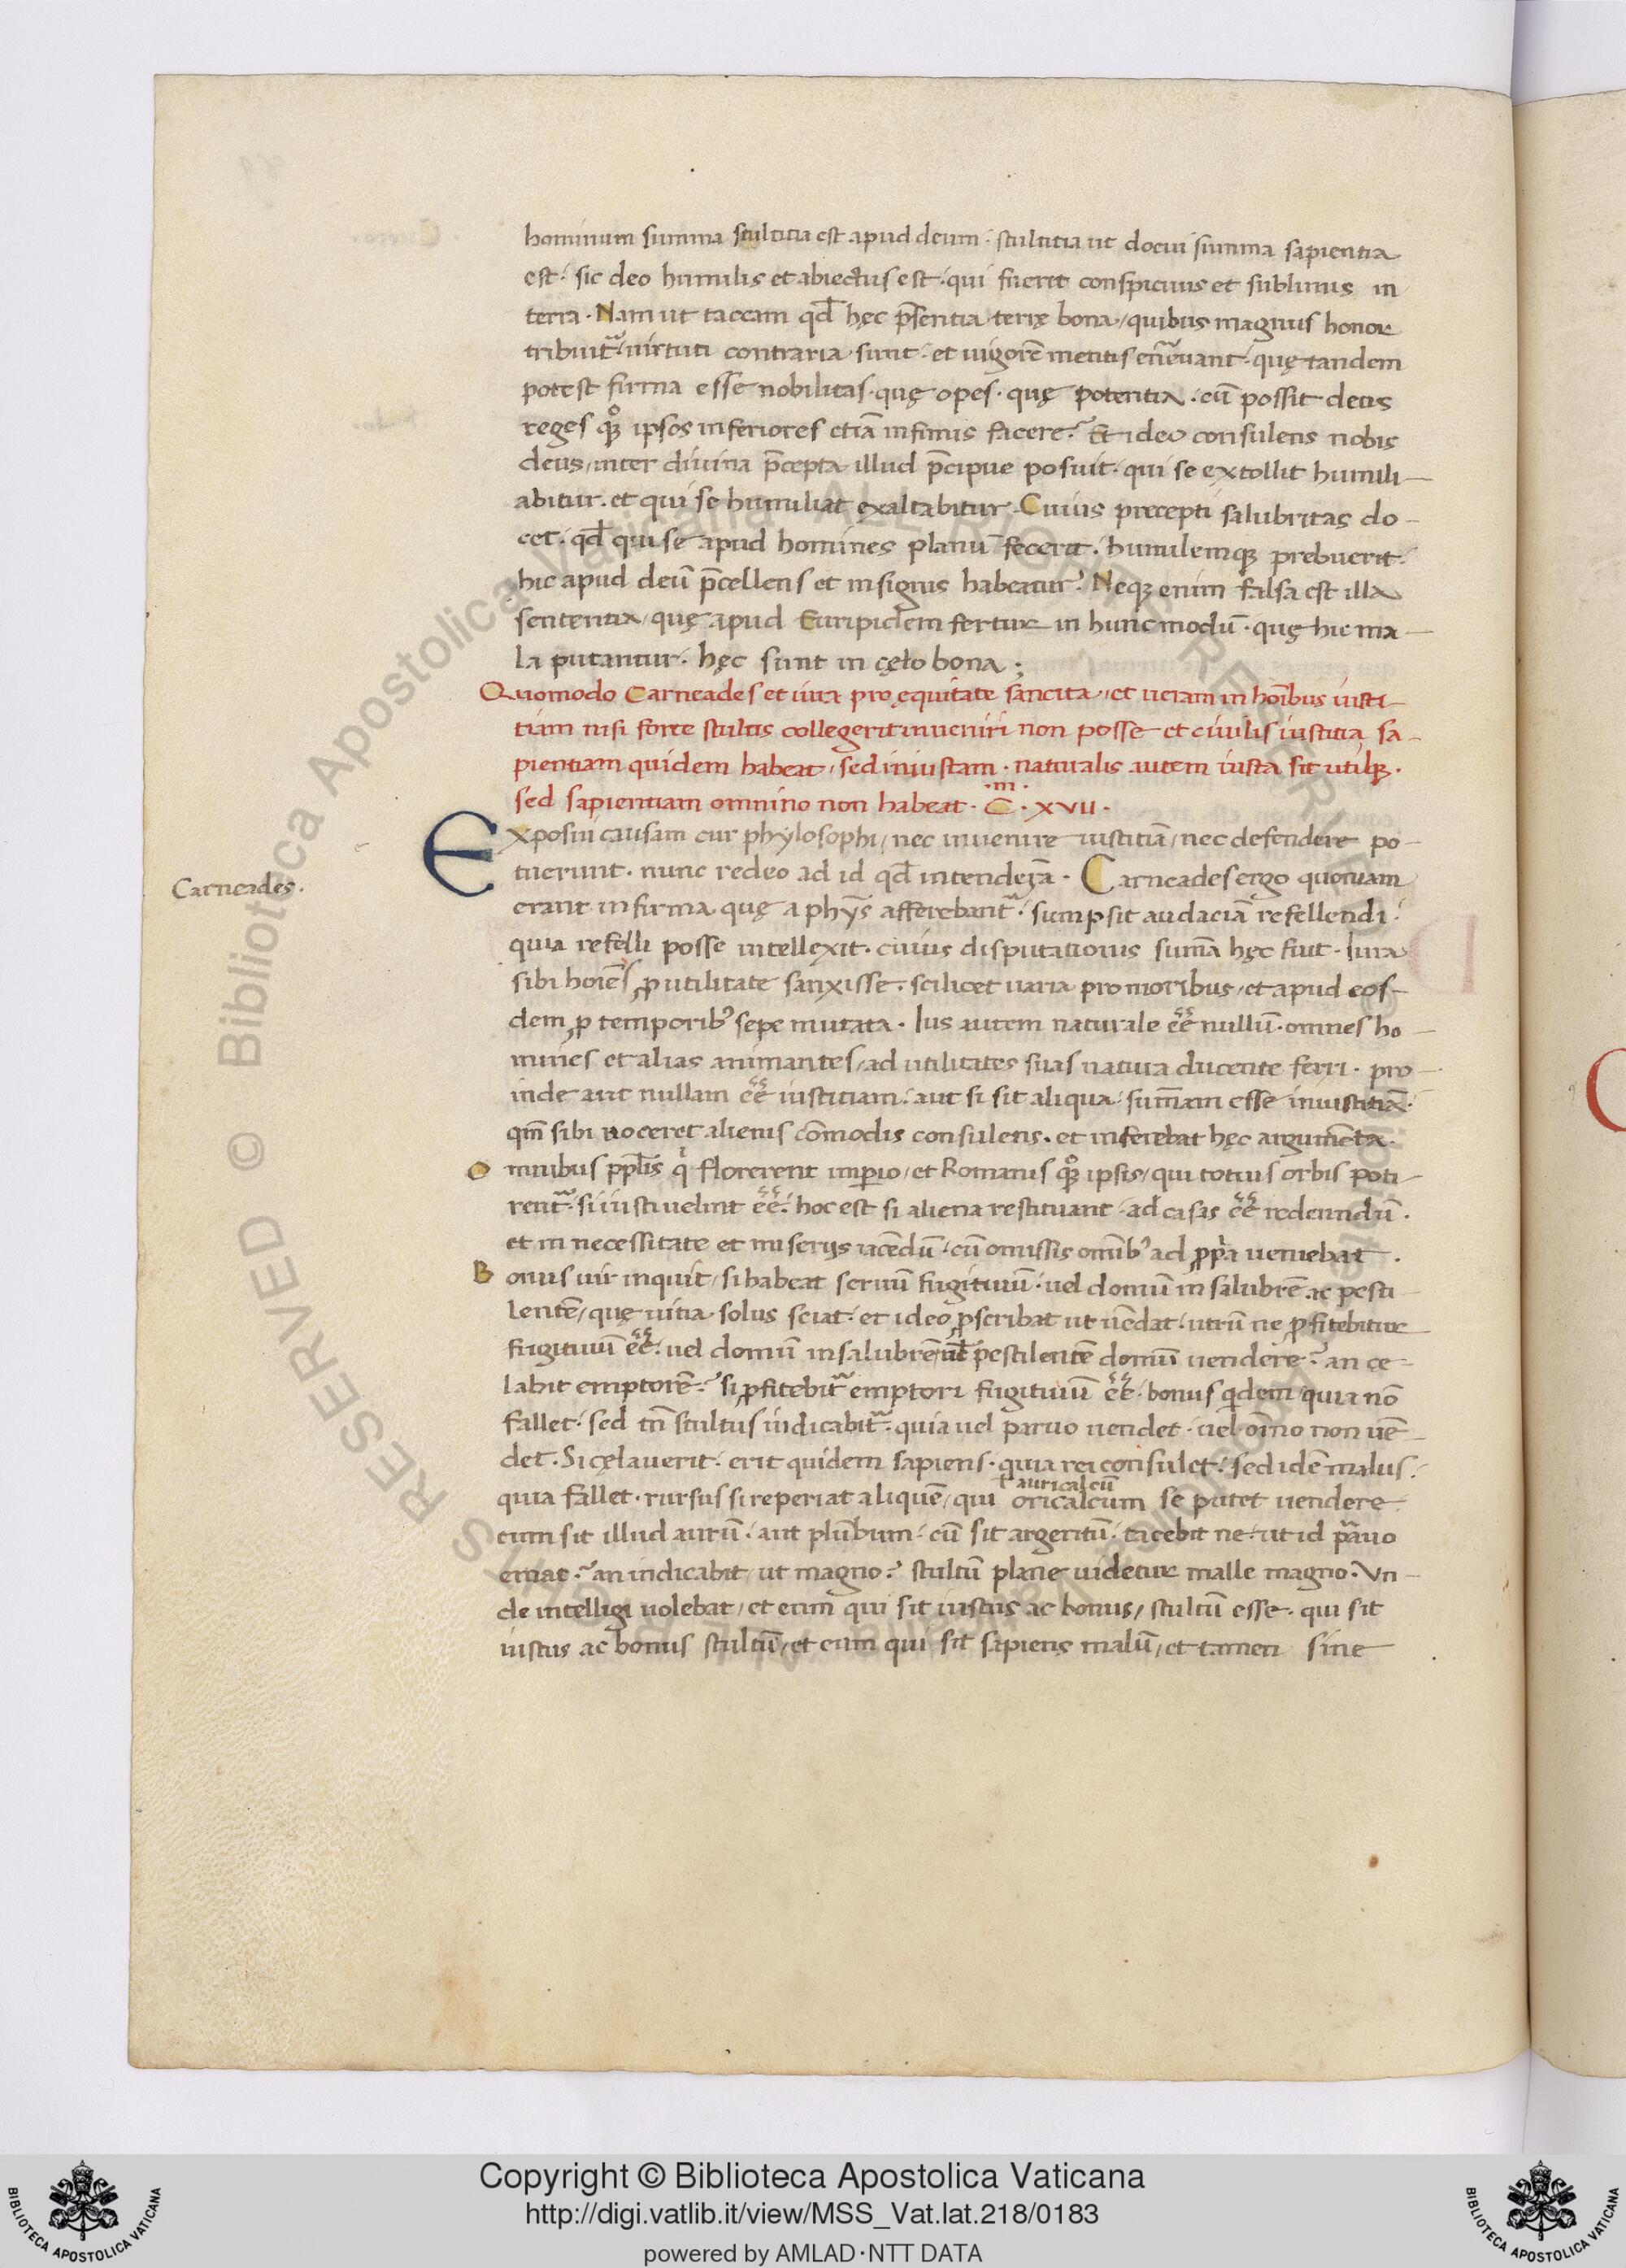 hominum summa stultitia est apud deum · stultitia ut docui summa sapientia
est · sic deo humilis et abiectus est · qui fuerit conspicuus et sublimis in
terra · Nam ut taceam qd̄ hęc p̄sentia terrę bona / quibus magnus honor
tribuit᷑ · uirtuti contraria sunt · et uigorē mentis en᷑uant · quę tandem
potest firma esse nobilitas · quę opes · quę potentia · cū possit deus
reges quoqꝫ ipsos inferiores etiā infimis facere? Et ideo consulens nobis
deus / inter diuina p̄cepta illud p̄cipue posuit · qui se extollit humili-
abitur · et qui se humiliat exaltabitur · Cuius precepti salubritas do-
cet · qd̄ qui se apud homines planū fecerit · humilemqꝫ prebuerit ·
hic apud deū p̄cellens et insignis habeatur? Neqꝫ enim falsa est illa
sententia / quę apud Euripidem fertur in hunc modū · quę hic ma-
la putantur · hęc sunt in cęlo bona ;
Quomodo Carneades et iura pro ęquitate sancita / et ueram in hoībus iusti-
tiam nisi forte stultis collegerit inueniri non posse et ciuilis iustitia sa-
pientiam quidem habeat / sed iniustam · naturalis autem iusta sit utiqꝫ ·
sed sapientiam omnino non habeat · C̄ · xvii ·
·m·
Exposui causam cur phylosophi / nec inuenire iustitiā / nec defendere po-
tuerunt · nunc redeo ad id qd̄ intenderā · Carneades ergo quoniam
Carneades.
erant infirma quę a phȳs afferebant᷑ · sumpsit audaciā refellendi ·
quia refelli posse intellexit · cuius disputationis sum̄a hęc fuit · Iura
sibi hoīes ꝓ utilitate sanxisse · scilicet uaria pro moribus / et apud eos-
dem ꝓ temporibꝰ sepe mutata · Ius autem naturale eē nullū · omnes ho-
mines et alias animantes / ad utilitates suas natura ducente ferri · pro-
inde aut nullam eē iustitiam · aut si sit aliqua · sum̄am esse iniustitiā ·
qm̄ sibi noceret alienis cōmodis consulens · et inferebat hęc argumēta ·
Omnibus pp̄lis qⁱ florerent imꝑio / et Romanis quoqꝫ ipsis / qui totius orbis poti-
rent᷑ · si iusti uelint eē · hoc est si aliena restituant · ad casas eē redeundū ·
et in necessitate et miserijs iacēdū · cū omissis om̄ibꝰ ad ꝓpͥa ueniebat ·
Bonus uir inquit / si habeat seruū fugitiuū · uel domū insalubrē ac pesti-
lentē / quę uitia solus sciat · et ideo ꝓscribat ut uēdat · utrū ne ꝓfitebitur
fugitiuū eē · uel domū insalubrē ul̄ pestilentē domū uendere? an ce-
labit emptorē? si ꝓfitebit᷑ emptori fugitiuū eē · bonus qͥdem / quia nō
fallet · sed tn̄ stultus iudicabit᷑ · quia uel paruo uendet · uel om̄o non uē-
det · Si cęlauerit · erit quidem sapiens · quia rei consulet · sed idē malus ·
quia fallet · rursus si reperiat aliquē / qui oricalcum se putet uendere ·
auricalcū
cum sit illud aurū · aut plūbum · cū sit argentū · tacebit ne · ut id paruo
emat? an indicabit / ut magno? stultū plane uidetur malle magno · Vn-
de intelligi uolebat / et eum qui sit iustus ac bonus / stultū esse · qui sit
iustus ac bonus stultū / et eum qui sit sapiens malū / et tamen sine
Copyright © Biblioteca Apostolica Vaticana
http://digi.vatlib.it/view/MSS_Vat.lat.218/0183
powered by AMLAD·NTT DATA
BIBLIOTECA APOSTOLICA VATICANA
BIBLIOTECA APOSTOLICA VATICANA